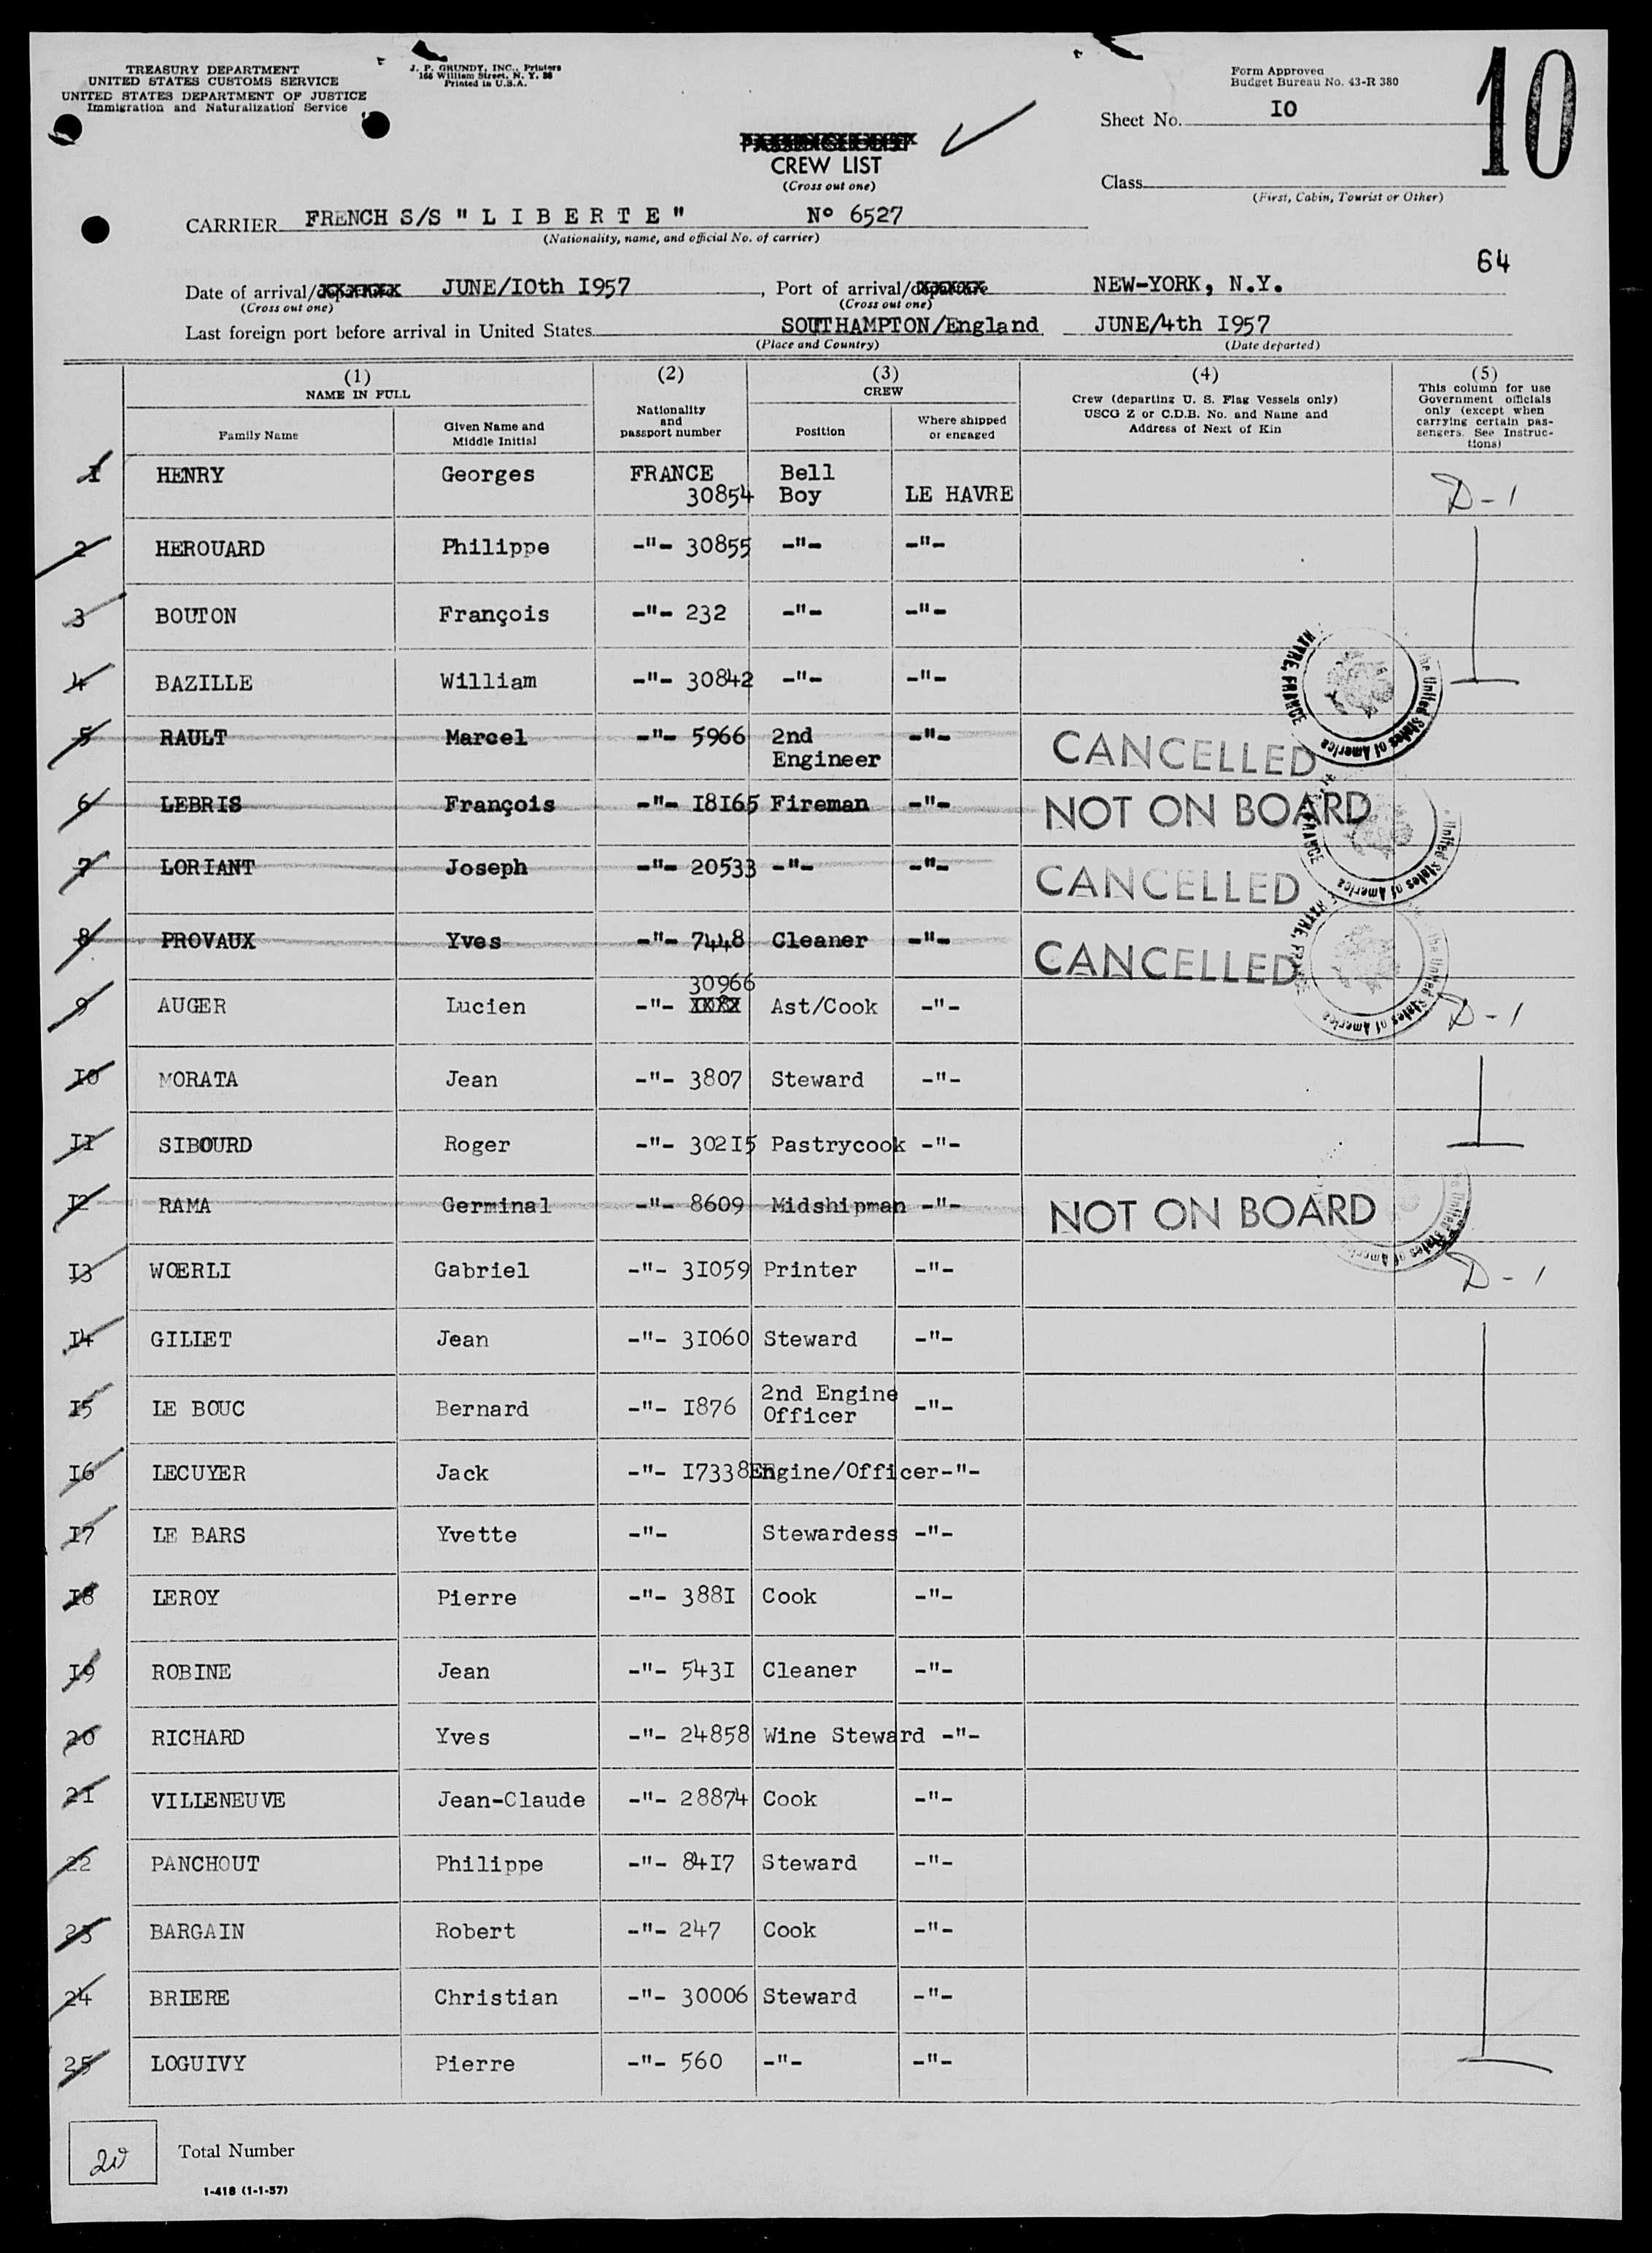 TREASURY DEPARTMENT
UNITED STATES CUSTOMS SERVICE
UNITED STATES DEPARTMENT OF JUSTICE
Immigration and Naturalization Service
J. P. GRUNDY, INC., Printers
166 William Street, N. Y. 38
Printed in U.S.A.
Form Approved
Budget Bureau No. 43-R 380
Sheet No. IO
10
PASSENGER LIST
CREW LIST
(Cross out one)
Class
(First, Cabin, Tourist or Other)
CARRIER FRENCH S/S " L I B E R T E " No 6527
(Nationality, name, and official No. of carrier)
64
Date of arrival/departure JUNE/IOth I957, Port of arrival/departure NEW-YORK, N.Y.
(Cross out one) (Cross out one)
Last foreign port before arrival in United States SOUTHAMPTON/England JUNE/4th I957
(Place and Country) (Date departed)
(1) NAME IN FULL
Family Name
Given Name and Middle Initial
(2) Nationality and passport number
(3) CREW
Position
Where shipped or engaged
(4) Crew (departing U. S. Flag Vessels only) USCG Z or C.D.B. No. and Name and Address of Next of Kin
(5) This column for use Government officials only (except when carrying certain passengers. See Instructions)
I HENRY Georges FRANCE 30854 Bell Boy LE HAVRE D-1
2 HEROUARD Philippe -"- 30855 -"- -"-
3 BOUTON François -"- 232 -"- -"-
4 BAZILLE William -"- 30842 -"- -"-
HAVRE, FRANCE the United States of America
5 RAULT Marcel -"- 5966 2nd Engineer -"- CANCELLED
6 LEBRIS François -"- I8I65 Fireman -"- NOT ON BOARD
FRANCE United States of America
7 LORIANT Joseph -"- 20533 -"- -"- CANCELLED
8 PROVAUX Yves -"- 7448 Cleaner -"- CANCELLED
HAVRE, the United States of America
9 AUGER Lucien -"- 30966 Ast/Cook -"- D-1
IO MORATA Jean -"- 3807 Steward -"-
II SIBOURD Roger -"- 302I5 Pastrycook -"-
I2 RAMA Germinal -"- 8609 Midshipman -"- NOT ON BOARD
United States of America
I3 WOERLI Gabriel -"- 3I059 Printer -"- D-1
I4 GILLET Jean -"- 3I060 Steward -"-
I5 LE BOUC Bernard -"- I876 2nd Engine Officer -"-
I6 LECUYER Jack -"- I7338 Engine/Officer -"-
I7 LE BARS Yvette -"- Stewardess -"-
I8 LEROY Pierre -"- 388I Cook -"-
I9 ROBINE Jean -"- 543I Cleaner -"-
20 RICHARD Yves -"- 24858 Wine Steward -"-
2I VILLENEUVE Jean-Claude -"- 28874 Cook -"-
22 PANCHOUT Philippe -"- 84I7 Steward -"-
23 BARGAIN Robert -"- 247 Cook -"-
24 BRIERE Christian -"- 30006 Steward -"-
25 LOGUIVY Pierre -"- 560 -"- -"-
20 Total Number
1-418 (1-1-57)